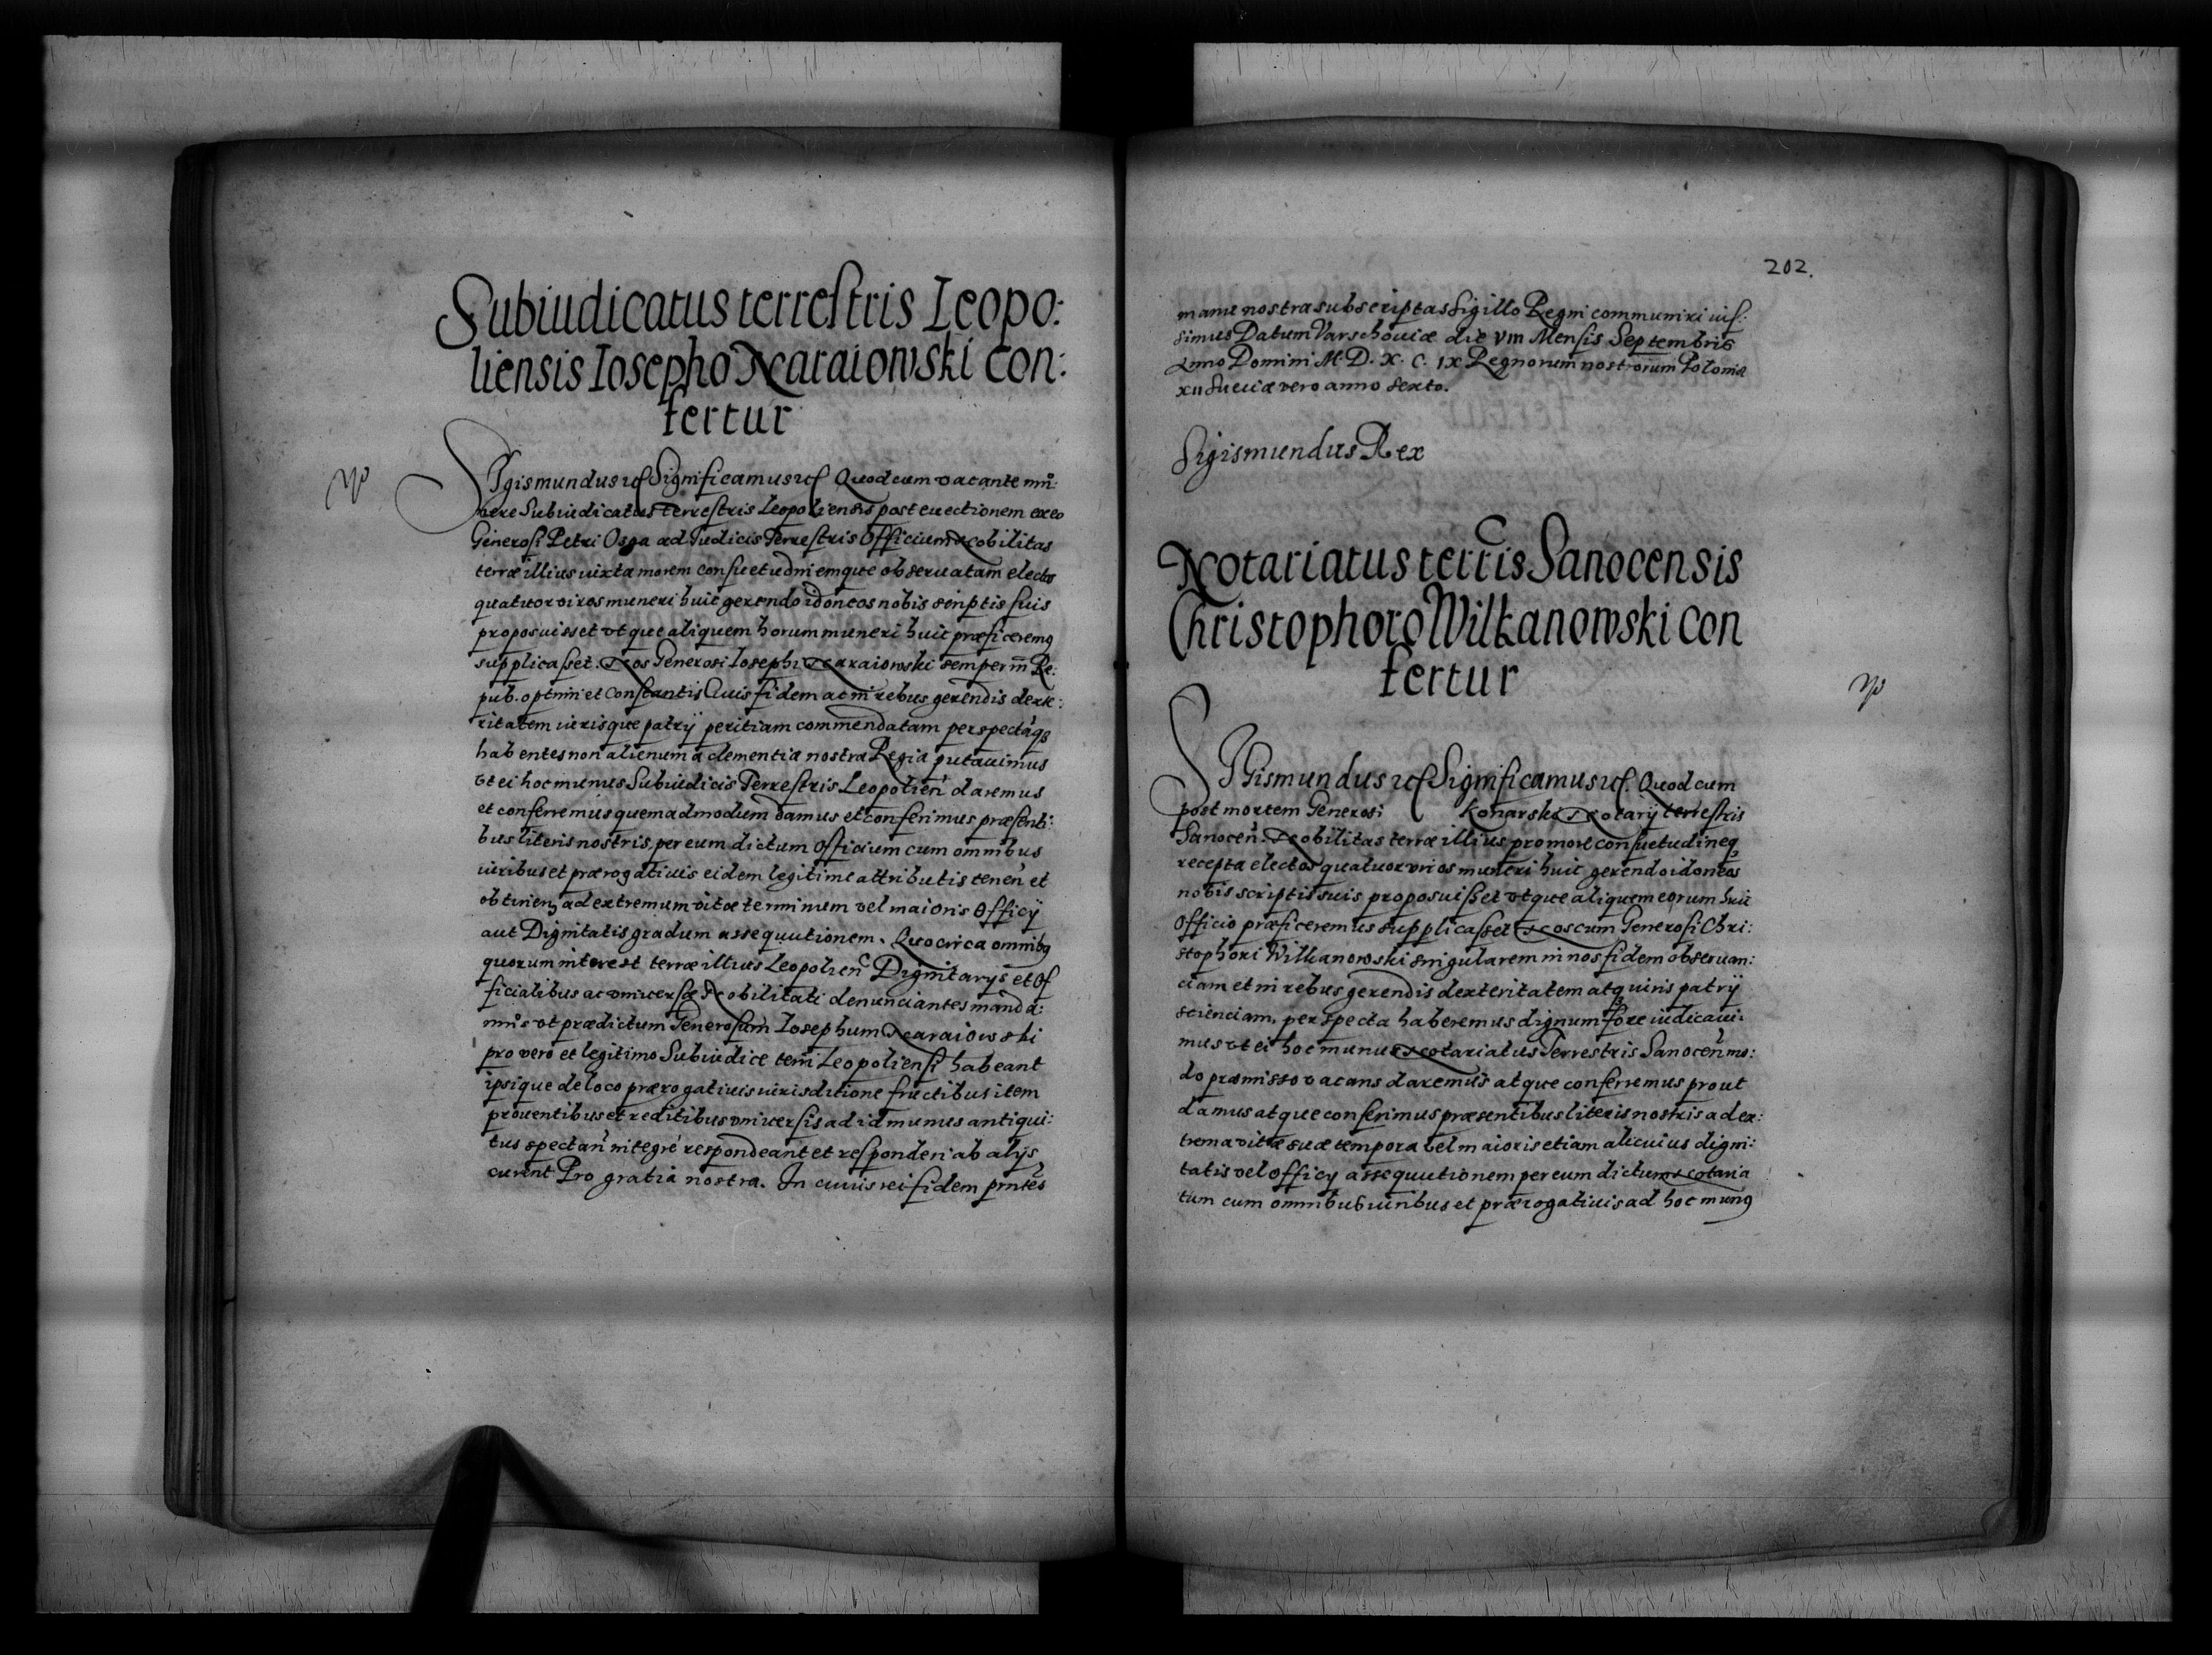 Subiudicatus terrestris Leopo:
liensis Iosepho Naraiowski con:
fertur
Sigismundus etc Significamus etc Quod cum vacante mu:
nere Subiudicatus Terrestris Leopoliensis post euectionem ex eo
Generosi Petri Osga ad Iudicis Terrestris Officium Nobilitas
terræ illius iuxta morem consuetudinemque obseruatam electos
quatuor viros muneri huic gerendo idoneos nobis scriptis suis
proposuisset vtque aliquem horum muneri huic præficeremus
supplicasset. Nos Generosi Iosephi Naraiowski semper in Re:
pub. optimi et constantis Ciuis fidem ac in rebus gerendis dexte:
ritatem iurisque patrij peritiam commendatam perspectamq3
habentes non alienum a clementia nostra Regia putauimus
vt ei hoc munus Subiudicis Terrestris Leopolien daremus
et conferremus quemadmodum damus et conferimus præsenti:
bus literis nostris, per eum dictum Officium cum omnibus
iuribus et prærogatiuis eidem legitime attributis tenen et
obtinen, ad extremum vitæ terminum vel maioris Officij
aut Dignitatis gradum assequutionem. Quocirca omnibus
quorum interest terræ illius Leopolien Dignitarys et Of
ficialibus ac vniuersæ Nobilitati denunciantes manda:
mus vt prædictum Generosum Iosephum Naraiowski
pro vero et legitimo Subiudice terri Leopoliensi habeant
ipsique de loco prærogatiuis iurisditione fructibus item
prouentibus et reditibus vniuersis ad id munus antiqui:
tus spectan integre respondeant et responderi ab alys
curent Pro gratia nostra. In cuius rei fidem pntes
202.
manu nostra subscriptas Sigillo Regni communiri iuf:
simus Datum Varschouiæ die VIII Mensis Septembris
Anno Domini M. D. X. C. IX Regnorum nostrorum Poloniæ
XII Sueciæ vero anno sexto.
Sigismundus Rex
Notariatus terris Sanocensis
Christophoro Wilkanowski con
fertur
Sigismundus etc Significamus etc. Quod cum
post mortem Generosi Konarski Notarij terrestris
Sanocen. Nobilitas terræ illius pro more consuetudineq3
recepta electos quatuor viros muneri huic gerendo idoneos
nobis scriptis suis proposuisset vtque aliquem eorum huic
Officio præficeremus supplicasset Nos cum Generosi Chri:
stophori Wilkanowski singularem in nos fidem obseruan:
ciam et in rebus gerendis dexteritatem atq3 iuris patrij
scienciam, perspecta haberemus dignum fore iudicaui:
mus vt ei hoc munus Notariatus Terrestris Sanocen mo:
do præmisso vacans daremus atque conferremus prout
damus atque conferimus præsentibus literis nostris ad ex:
trema vitæ suæ tempora vel maioris etiam alicuius digni:
tatis vel Officy assequutionem per eum dictum Notaria
tum cum omnibus iuribus et prærogatiuis ad hoc munus